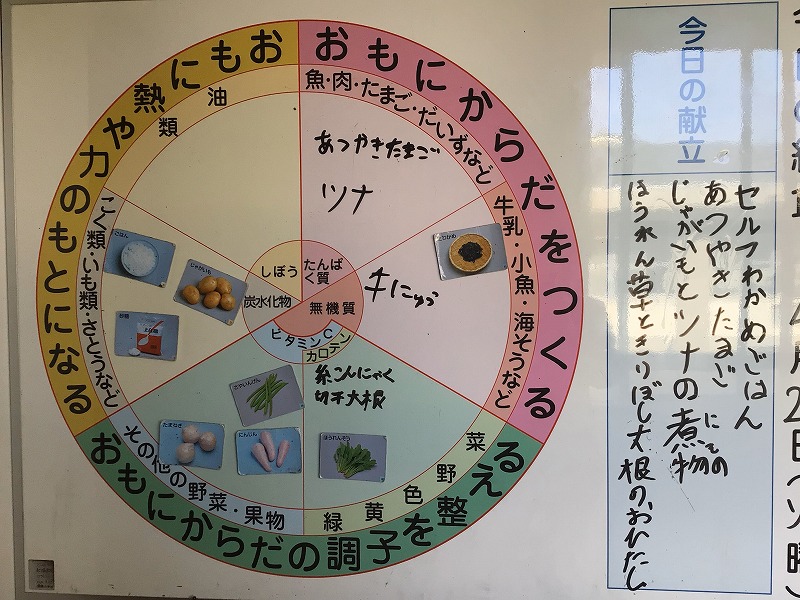 おもに熱や力のもとになる
おもにからだをつくる
おもにからだの調子を整える
油類
魚・肉・たまご・だいずなど
牛乳・小魚・海そうなど
こく類・いも類・さとうなど
その他の野菜・果物
緑黄色野菜
しぼう
たんぱく質
炭水化物
無機質
ビタミンC
カロテン
あつやきたまご
ツナ
牛にゅう
糸こんにゃく
切干大根
ごはん
じゃがいも
砂糖
さやいんげん
たまねぎ
にんじん
ほうれんそう
今日の献立
セルフわかめごはん
あつやきたまご
じゃがいもとツナの煮物
にもの
ほうれん草ときりぼし大根のおひたし